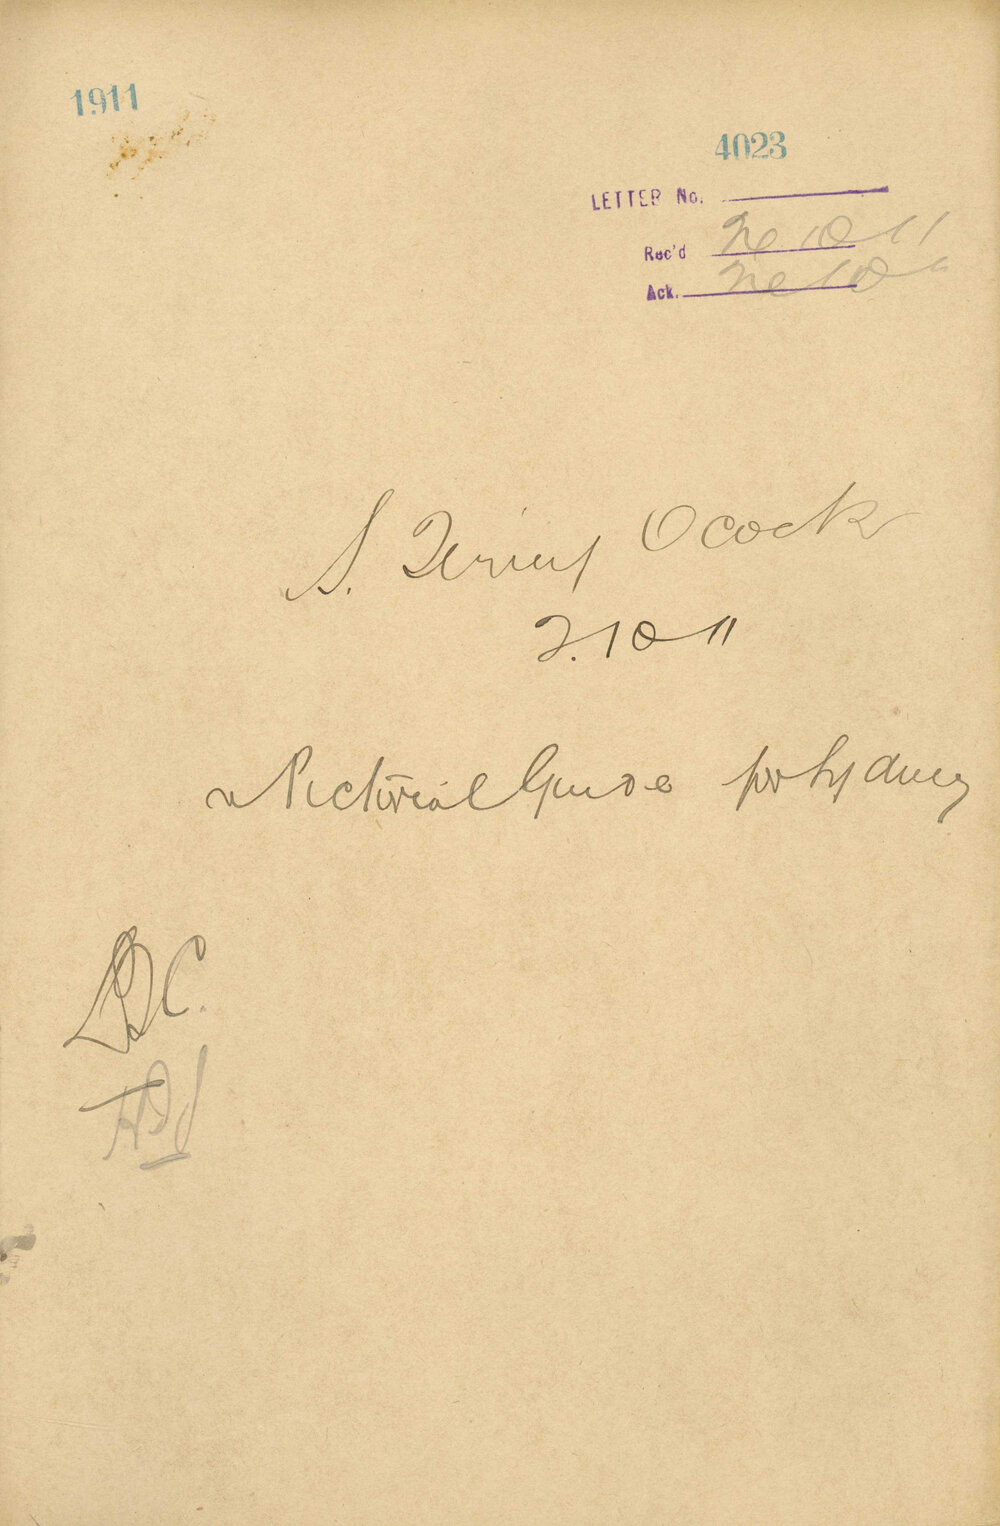 1911
4023
LETTER No.
Rec'd 2/10/11
Ack. 2/10/11
S. Ocock
2.10 11
Pictorial Guide for Sydney